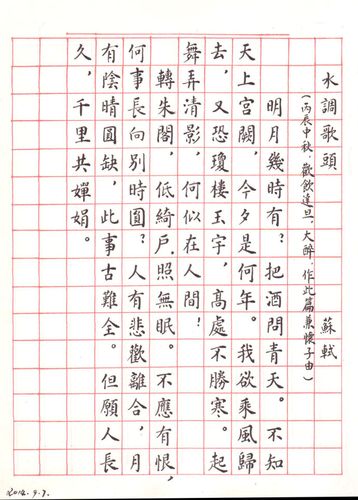 水調歌頭 蘇軾
(丙辰中秋,歡飲達旦,大醉,作此篇兼懷子由)
明月幾時有?把酒問青天。不知
天上宮闕,今夕是何年。我欲乘風歸
去,又恐瓊樓玉宇,高處不勝寒。起
舞弄清影,何似在人間!
轉朱閣,低綺戶,照無眠。不應有恨,
何事長向別時圓?人有悲歡離合,月
有陰晴圓缺,此事古難全。但願人長
久,千里共嬋娟。
2012.9.7.